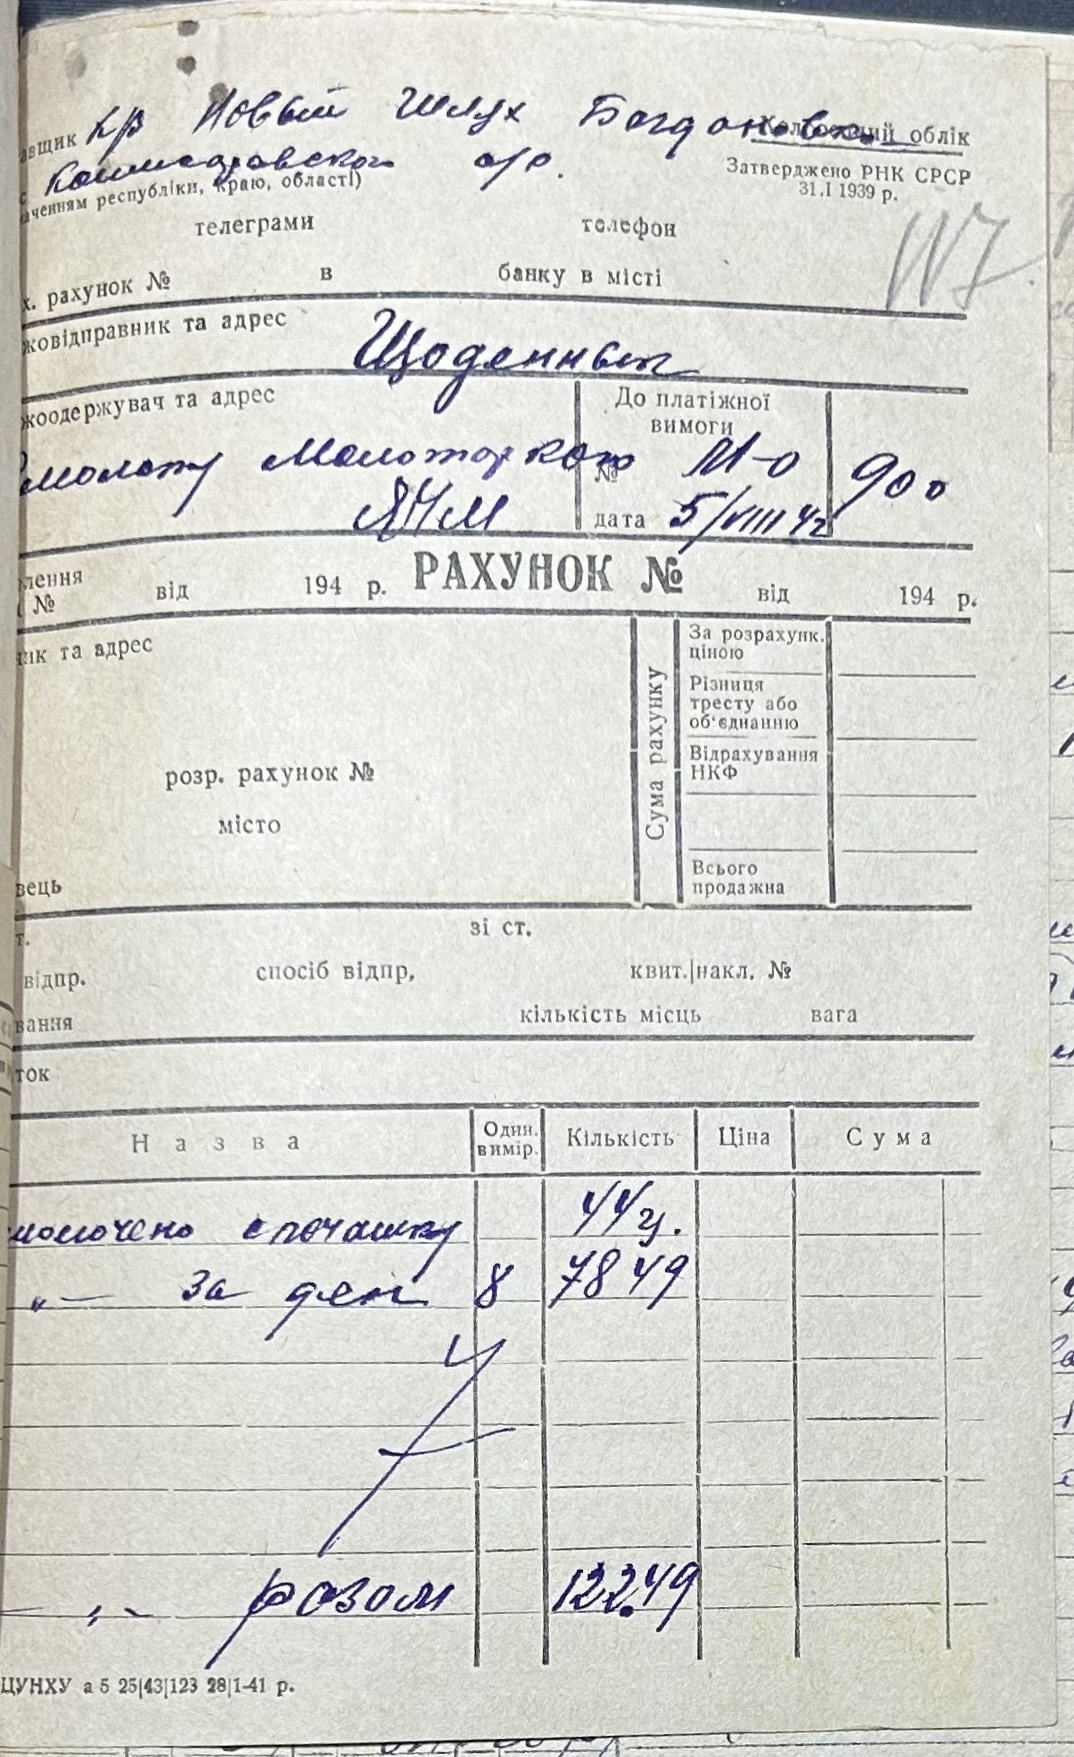 авщик кр Новый Шлух Богдановка
Колгоспний облік
с Комисаровского о/р.
Затверджено РНК СРСР
31.I 1939 р.
аченням республіки, краю, області)
телеграми телефон
х. рахунок № в банку в місті
жовідправник та адрес
Щоденник
жоодержувач та адрес До платіжної
вимоги
молоту Молоторкою № М-о 900
дата 5/VIII 42
лення
№ від 194 р. РАХУНОК № від 194 р.
ник та адрес
Сума рахунку
За розрахунк.
ціною
Різниця
тресту або
об'єднанню
Відрахування
НКФ
розр. рахунок №
місто
Всього
продажна
вець
т. зі ст.
відпр. спосіб відпр. квит.|накл. №
вання кількість місць вага
ток
Назва Один. вимір. Кількість Ціна Сума
молочено спочатку 44 ц.
-„- За ден 8 7849
-„- разом 122.49
ЦУНХУ а 5 25|43|123 28|1-41 р.